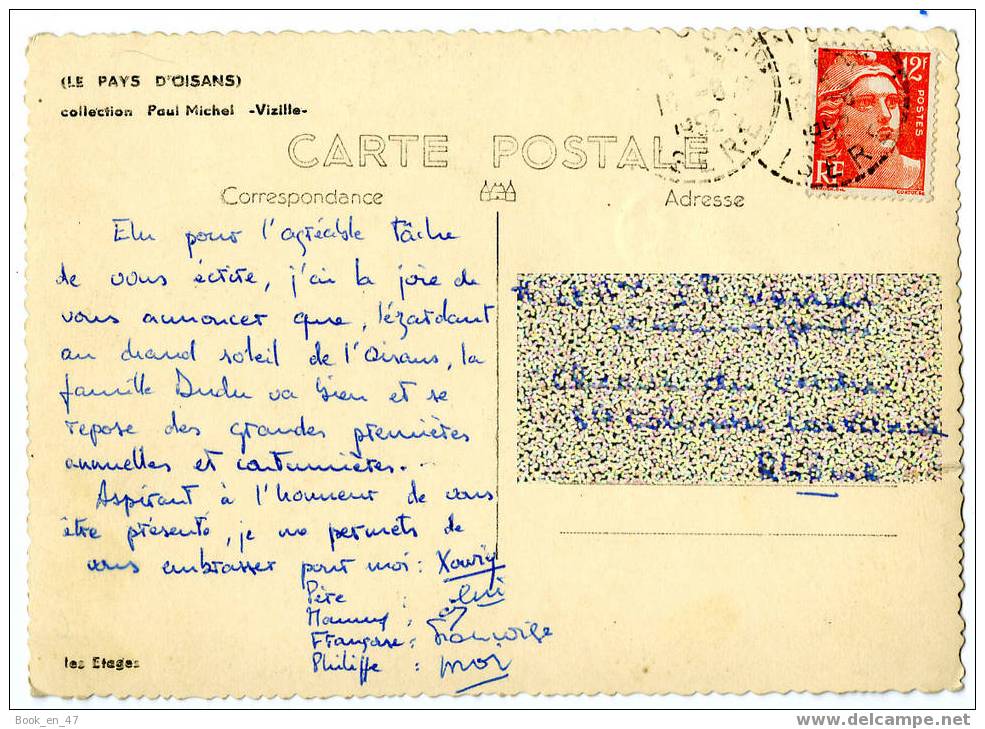 (LE PAYS D'OISANS)
collection Paul Michel -Vizille-
CARTE POSTALE
Correspondance
Adresse
12F
POSTES
RF
ISERE
Elu pour l'agréable tâche
de vous écrire, j'ai la joie de
vous annoncer que, lézardant
au grand soleil de l'Oisans, la
famille Dudu va bien et se
repose des grandes premières
annuelles et coutumières...
Aspirant à l'honneur de vous
être présenté, je me permets de
vous embrasser pour moi :
Père : lui
Mammy :
Françoise : Françoise
Philippe : moi
les Etages
Book_en_47
www.delcampe.net